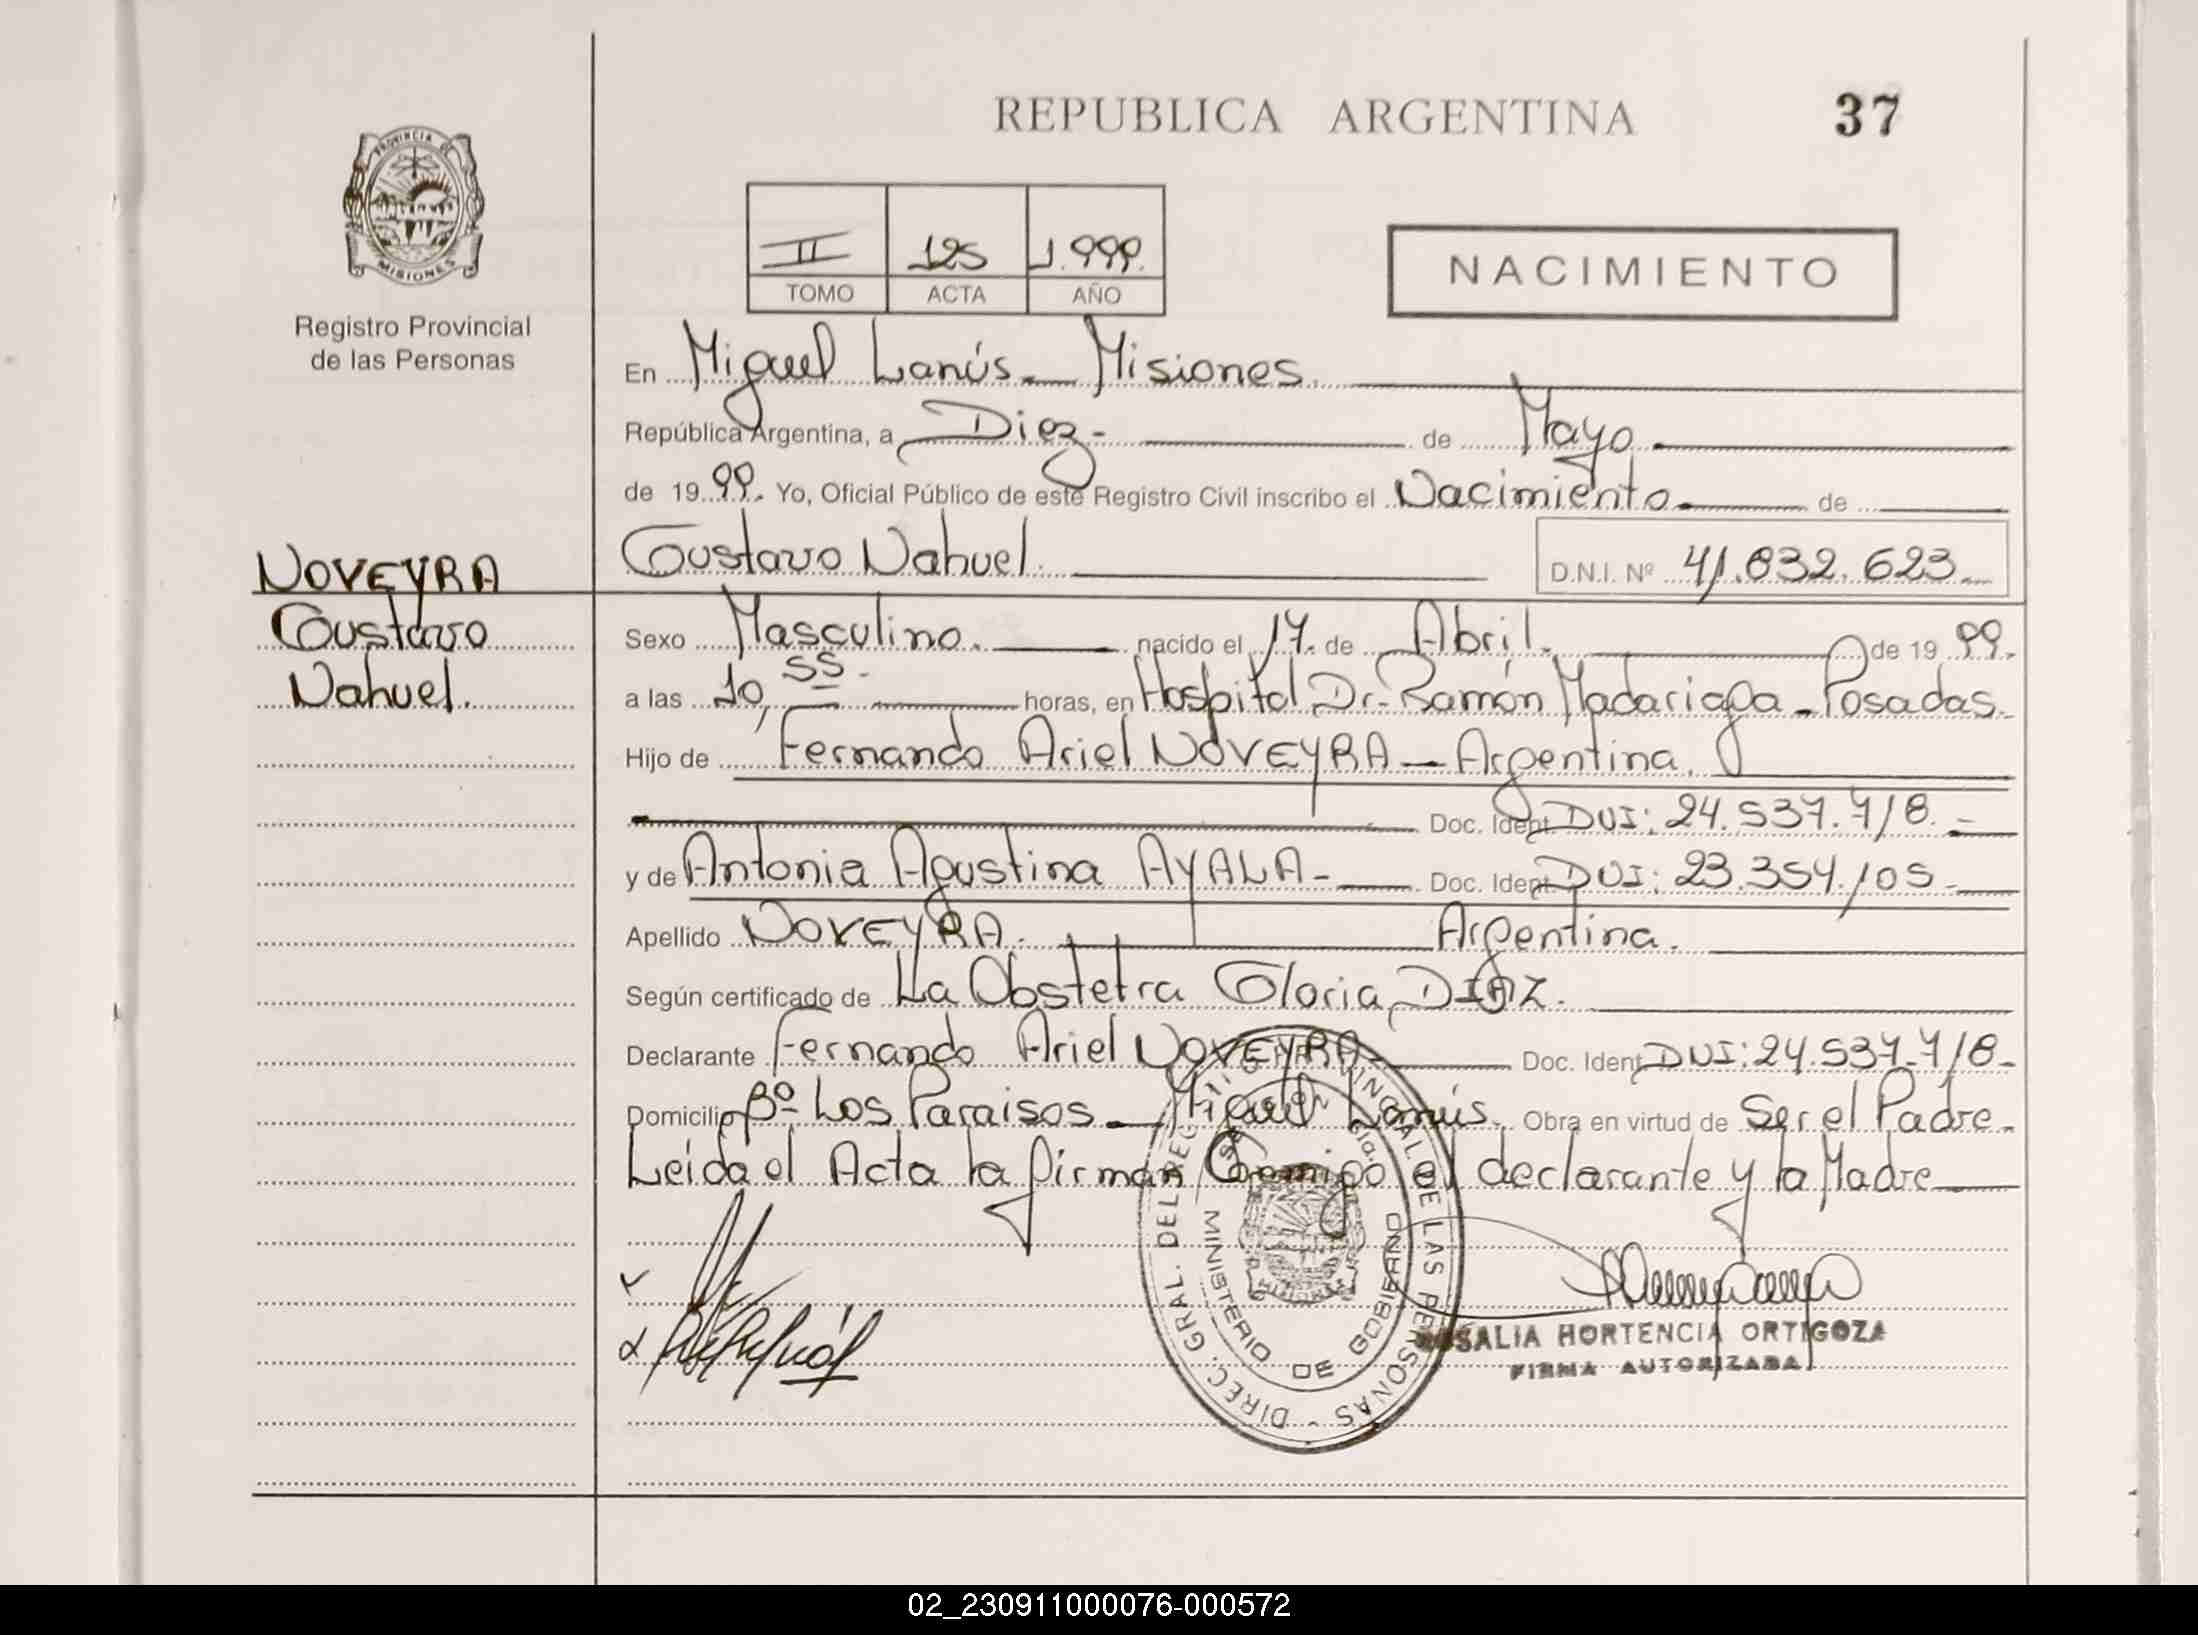 REPUBLICA ARGENTINA
37
PROVINCIA DE
MISIONES
Registro Provincial
de las Personas
II 125 1.999.
TOMO ACTA AÑO
NACIMIENTO
En Miguel Lanús - Misiones.
República Argentina, a Diez - de Mayo
de 1999. Yo, Oficial Público de este Registro Civil inscribo el Nacimiento de
NOVEYRA
Gustavo
Nahuel.
Gustavo Nahuel. D.N.I. Nº 41.832.623
Sexo Masculino. nacido el 17. de Abril. de 1999.
a las 10,55- horas, en Hospital Dr. Ramón Madariaga - Posadas.
Hijo de Fernando Ariel NOVEYRA - Argentina.
Doc. Ident. DNI: 24.537.718.-
y de Antonia Agustina AYALA - Doc. Ident. DNI: 23.354.105-
Apellido NOVEYRA. Argentina.
Según certificado de La Obstetra Gloria DIAZ.
Declarante Fernando Ariel NOVEYRA- Doc. Ident. DNI: 24.537.718-
Domicilio Bº Los Paraisos - Miguel Lanús. Obra en virtud de Ser el Padre.
Leida el Acta la firman Conmigo el declarante y la Madre
DIREC. GRAL. DEL REGISTRO PROVINCIAL DE LAS PERSONAS -
MINISTERIO DE GOBIERNO
ROSALIA HORTENCIA ORTIGOZA
FIRMA AUTORIZADA
02_230911000076-000572